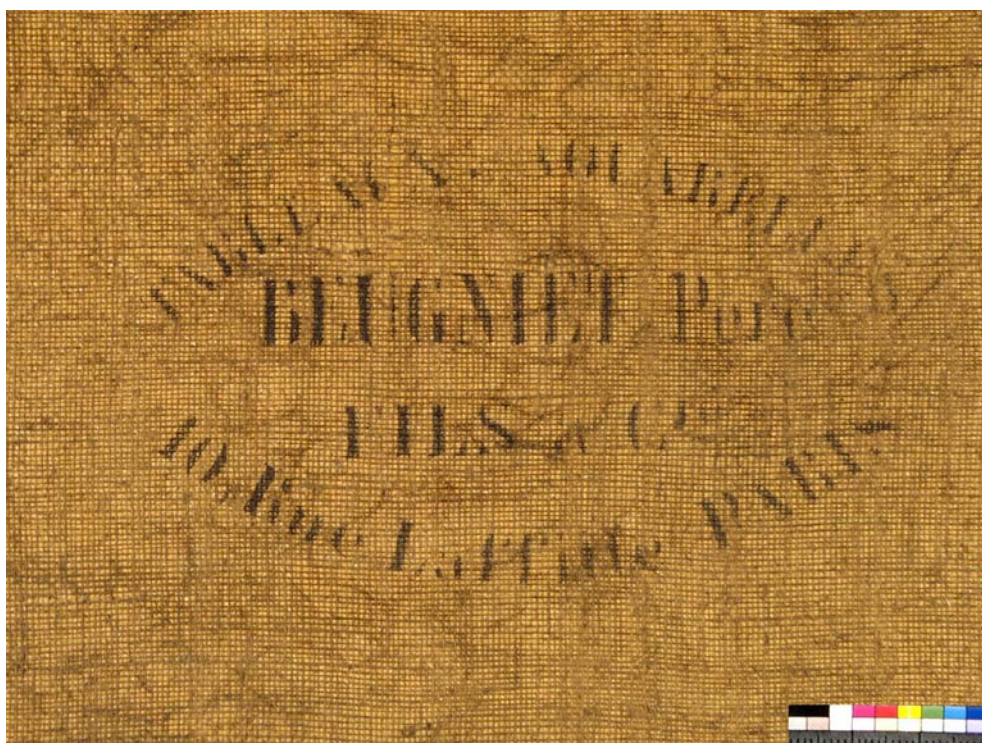 TABLEAUX. AQUARELLES
BEUGNIET Père
FILS & Cie
10, Rue Laffitte PARIS